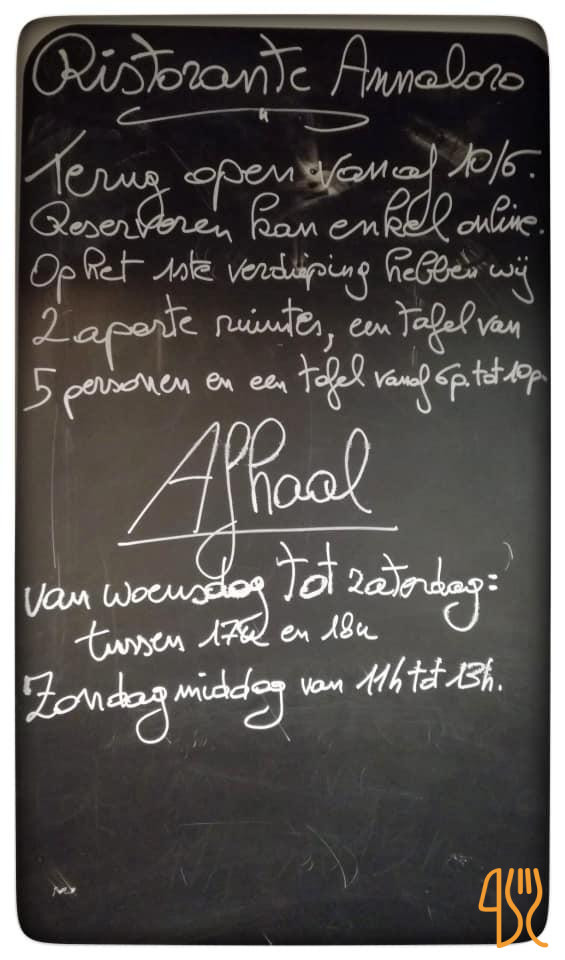 Ristorante Annaloro
Terug open vanaf 10/6.
Reserveren kan enkel online.
Op het 1ste verdieping hebben wij
2 aparte ruimtes, een tafel van
5 personen en een tafel vanaf 6p. tot 10p.
Afhaal
van woensdag tot zaterdag:
tussen 17u en 18u
Zondag middag van 11h tot 13h.